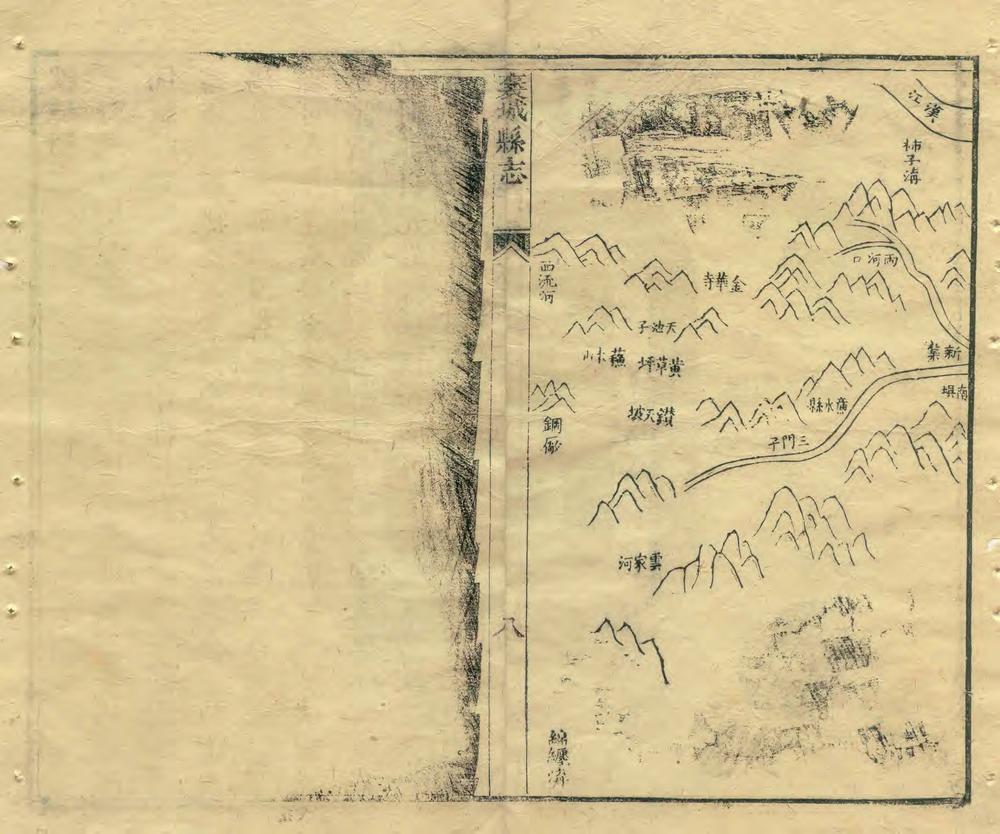 漢江
柿子溝
兩河口
新集
南垻
金華寺
天池子
黃草坪
蘸木山
廉水縣
鑚天坡
三門子
雲家河
西流河
鋼厰
綿纏溝
褒城縣志
八